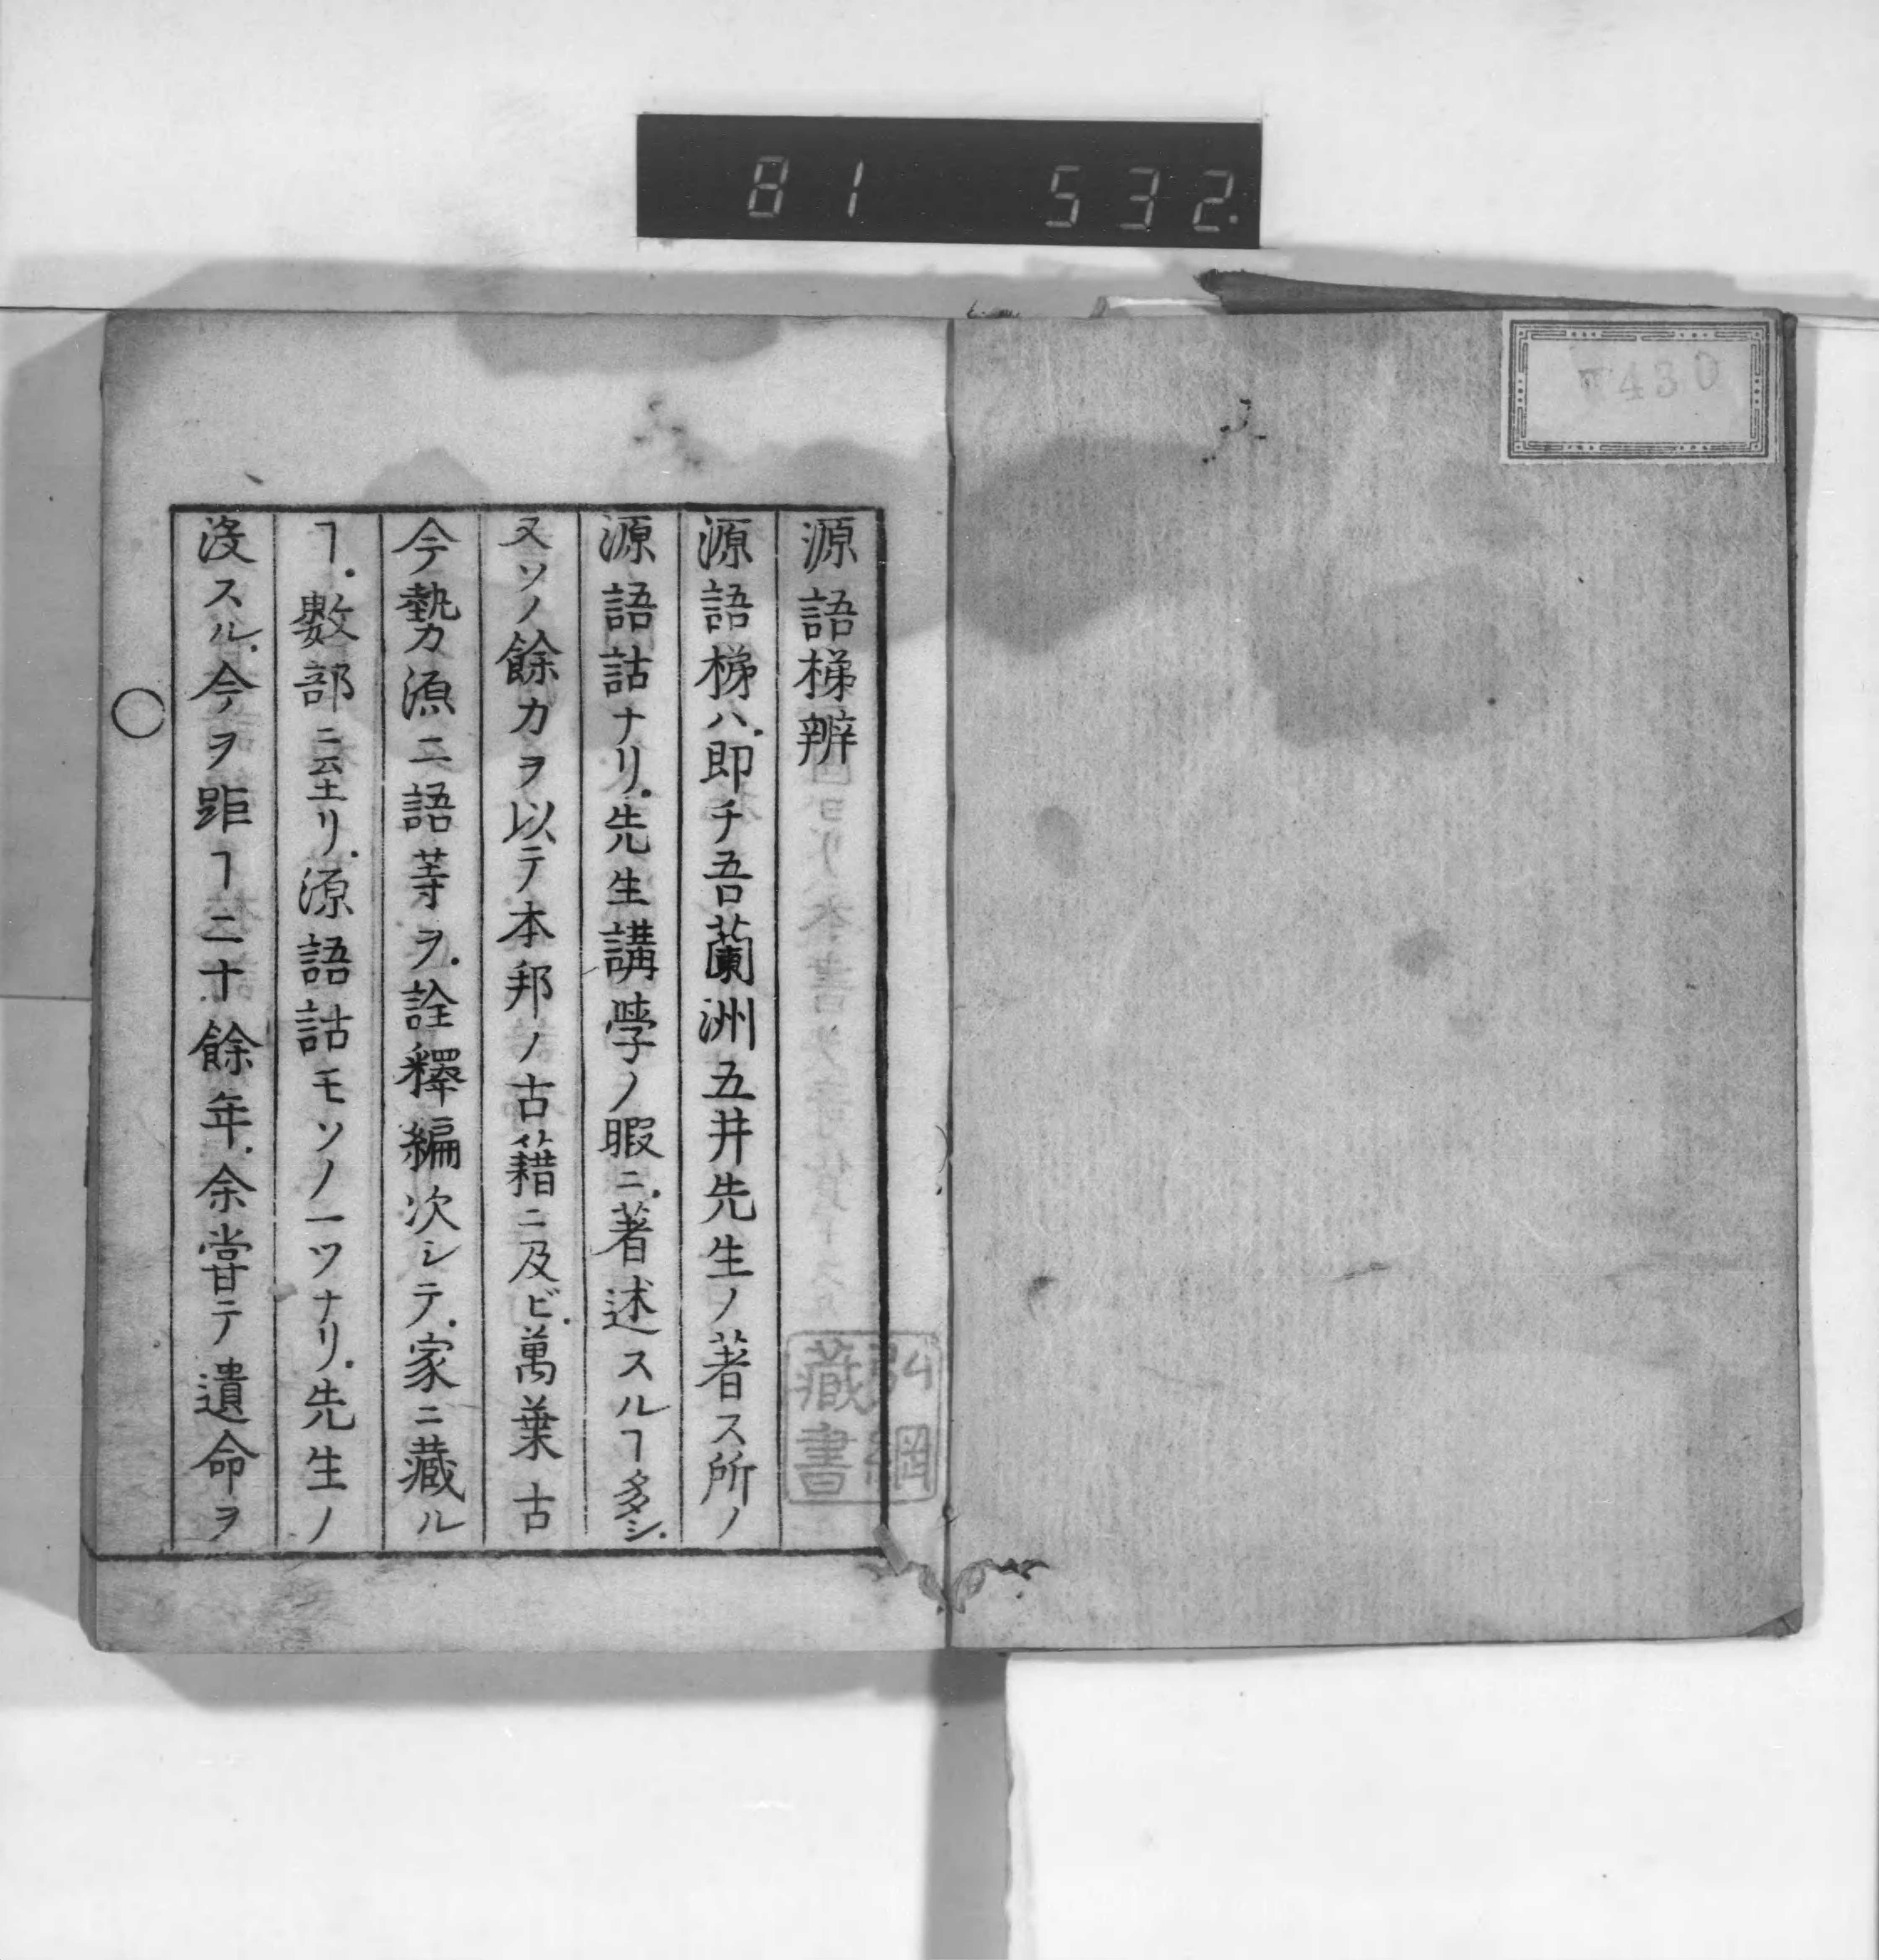 81 532.
430
源語梯辨
源語梯ハ.即チ吾蘭洲五井先生ノ著ス所ノ
源語詁ナリ.先生講学ノ暇ニ.著述スルヿ多シ.
又ソノ餘力ヲ以テ本邦ノ古藉ニ及ビ.萬葉古
今勢力源ニ語等ヲ.詮釋編次シテ.家ニ藏ル
ヿ.數部ニ至リ.源語詁モソノ一ツナリ.先生ノ
没スル.今ヲ距ヿ二十餘年.余嘗テ遺命ヲ
弘綱
蔵書